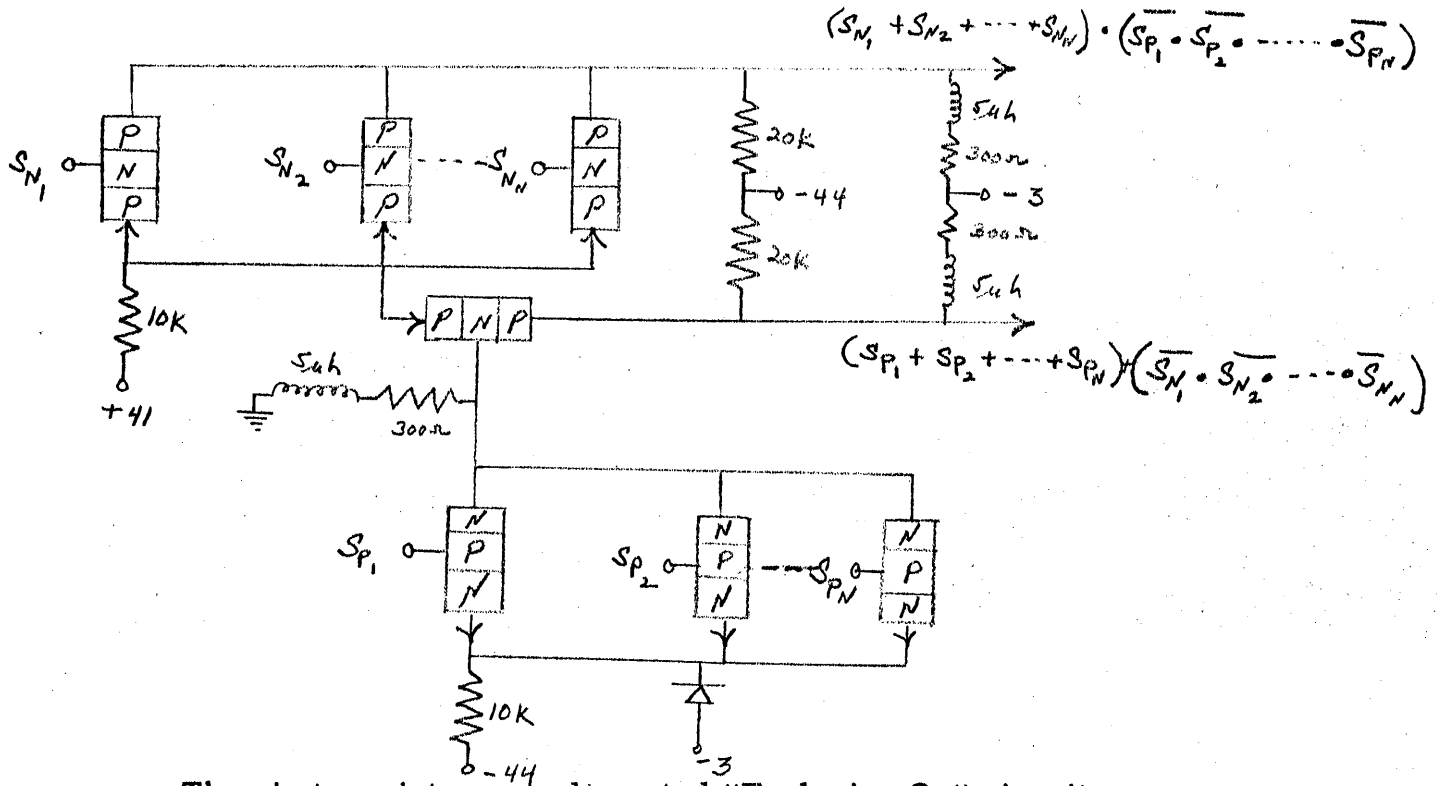 (S_N₁ + S_N₂ + ---- + S_N_N) • (S̅_P₁ • S̅_P₂ • ------ • S̅_P_N)
P
N
P
S_N₁
P
N
P
S_N₂
----
S_N_N
P
N
P
20K
-44
20K
5uh
300Ω
-3
300Ω
5uh
10K
+41
P N P
(S_P₁ + S_P₂ + ---- + S_P_N) + (S̅_N₁ • S̅_N₂ • ---- • S̅_N_N)
5uh
300Ω
S_P₁
N
P
N
S_P₂
N
P
N
----
S_P_N
N
P
N
10K
-44
-3